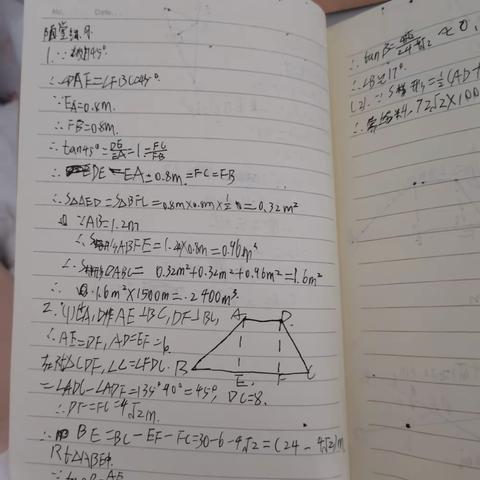 No. Date.
随堂练习
1. ∵坡角45°
∴∠DAE=∠FBC=45°
∵EA=0.8m.
∴FB=0.8m.
∵tan45°=DE/EA=1=FC/FB
∴DE=EA=0.8m=FC=FB
∴S△AED=S△BFC=0.8m×0.8m×1/2=0.32m²
∵AB=1.2m
∴S ABFE=1.2×0.8m=0.96m²
∴S DABC=0.32m²+0.32m²+0.96m²=1.6m²
∴1.6m²×1500m=2400m³.
2. (1)过A,D作AE⊥BC,DF⊥BC,
∴AE=DF,AD=EF=6.
在Rt△CDF,∠C=∠FDC
=∠ADC-∠ADF=135°-90°=45°, DC=8.
∴DF=FC=4√2m.
∴BE=BC-EF-FC=30-6-4√2=(24-4√2)m
Rt△ABE中.
A D
B E F C
∴tanB=4√2/24-4√2≈0.
∴∠B≈17°.
(2).∵S梯形=1/2(AD+
72√2×100